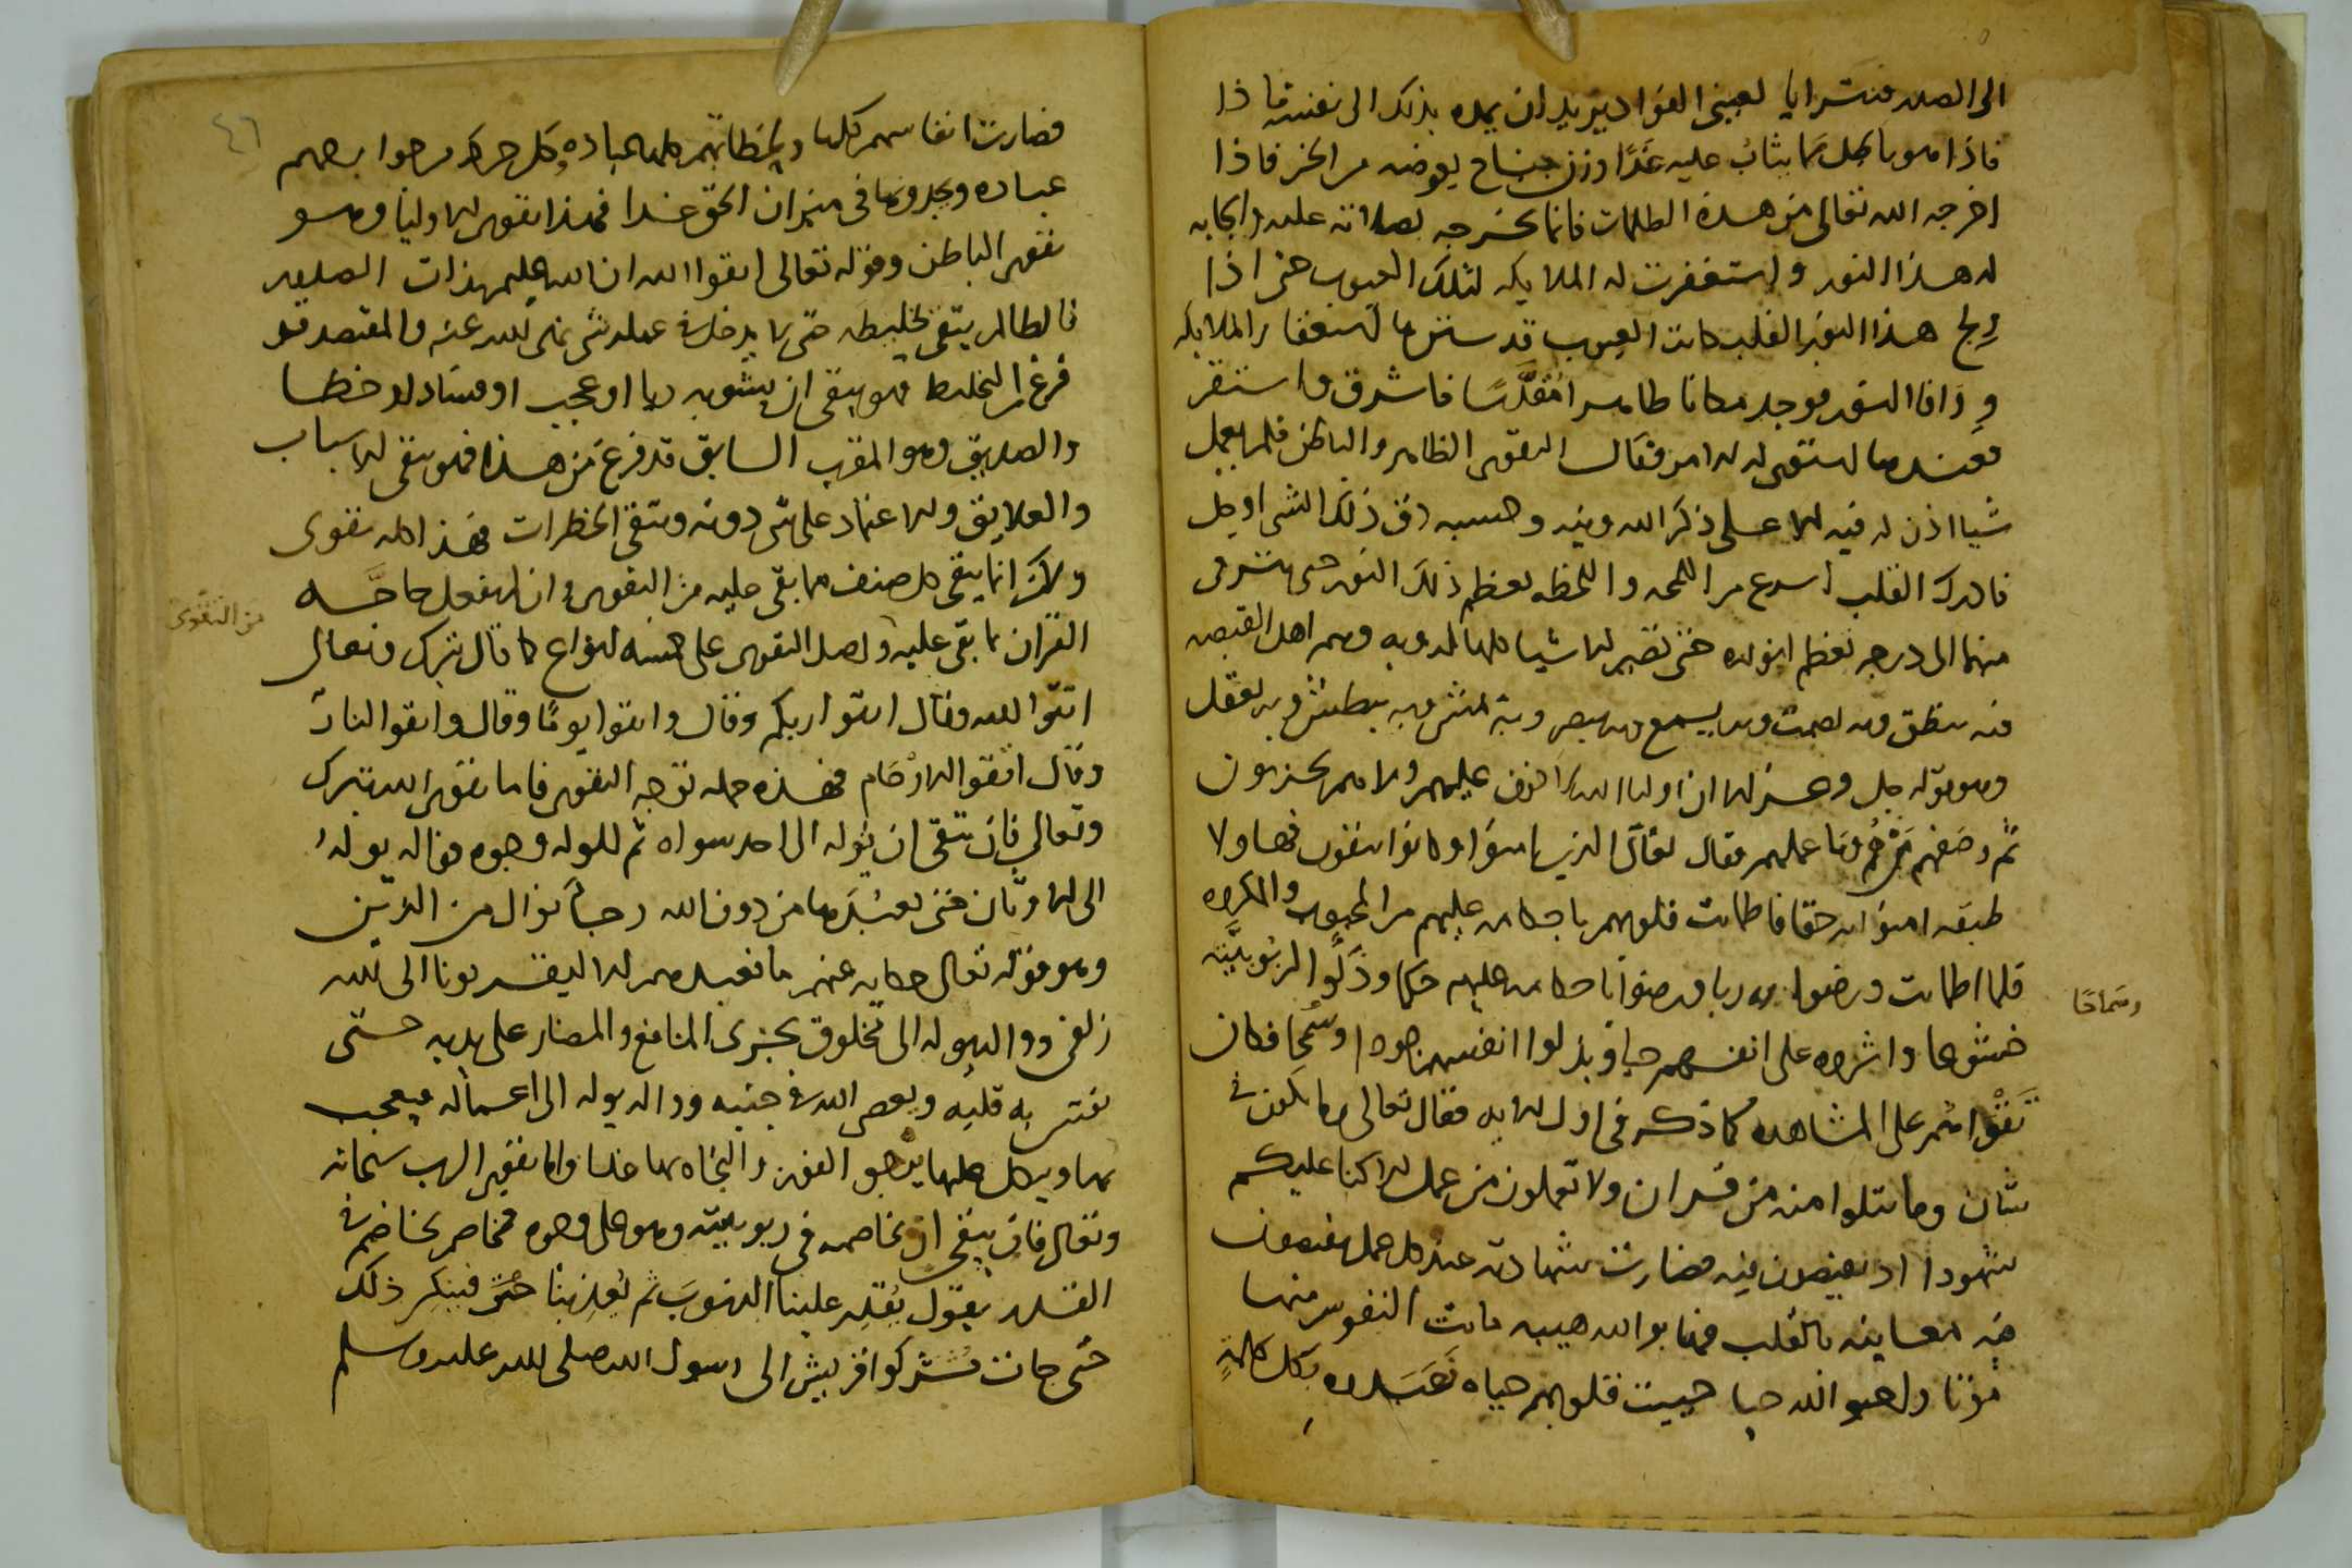 الى الصدر فتترايا لعينى الفواد يريد ان يمده بذلك الى نفسه فاذا
فاذا هو باطل مما يثاب عليه غدا وزن جناح بعوضه من الخير فاذا
اخرجه الله تعالى من هذه الظلمات فانما يخرجه بصلاته عليه وايجابه
له هذا النور واستغفرت له الملايكه لتلك العيوب حتى اذا
ولج هذا النور القلب كانت العيوب قد سترها استغفار الملايكه
ووافا النور فوجد مكانا طاهرا مقدسا فاشرق واستقر
فعندها استقرى له امر فقال التقوى الظاهر والباطن فلم يعمل
شيا اذن له فيه الا على ذكر الله وفيه وحسبه دق ذلك الشى او جل
فادرك القلب اسرع من اللمحه واللحظه لعظم ذلك النور حتى يترقى
منها الى درجه تعظم انواره حتى تصير الاشيا كلها له وبه وهم اهل القبضه
فبه ينطق وبه يصمت وبه يسمع وبه يبصر وبه يمشى وبه يبطش وبه يعقل
وهو قوله جل وعز الا ان اوليا الله لا خوف عليهم ولا هم يحزنون
ثم وصفهم عملهم فقال تعالى الذين امنوا وكانوا يتقون فهاولا
طبقه امنوا به حقا فاطمانت قلوبهم باحكامه عليهم من المحبوب والمكروه
فلما اطمانت ورضوا به ربا ورضوا باحكامه عليهم حكما وذلوا لربوبيته
خشوعا واثروه على انفسهم حبا وبذلوا انفسهم جودا وسمحا فكان
وسماحا
تقواهم على المشاهده كما ذكر فى اول الايه فقال تعالى وما تكون فى
شان وما تتلوا منه من قران ولا تعملون من عمل الا كنا عليكم
شهودا اذ تفيضون فيه فصارت شهادته عند كل عمل يفيضون
فيه معاينه بالقلب فهابوا الله هيبه ماتت النفوس منها
موتا واحبوا الله حبا حييت قلوبهم حياه بكل
٤٦
فصارت انفاسهم كلها ولحظاتهم كلها عباده وكل حركه من جوارحهم
عباده ويجدونها فى ميزان الحق غدا فهذا تقوى الاوليا وهو
تقوى الباطن وقوله تعالى اتقوا الله ان الله عليم بذات الصدور
فالظالم يتقى تخليطه حتى لا يدخل فى عمله شى نهى الله عنه والمقتصد قد
فرغ من التخليط فهو يتقى ان يشوبه ريا او عجب او فساد او خطا
والصديق وهو المقرب السابق قد فرغ من هذا فهو يتقى الاسباب
والعلايق والاعتماد على شى دونه ويتقى الخطرات فهذا كله تقوى
ولكن انما يتقى كل صنف مما بقى عليه من التقوى وان لم يفعل حاجه
من التقوى
القران بما بقى عليه واصل التقوى على خمسه انواع كما قال تبرك وتعالى
اتقوا الله وقال اتقوا ربكم وقال واتقوا يوما وقال واتقوا النار
وقال اتقوا الارحام فهذه جمله توجه التقوى فاما تقوى الله تبرك
وتعالى فان تتقى ان توله الى احد سواه ثم للوله وجوه فواله يوله
الى الاوثان حتى يعبدها من دون الله رجا نوال من الدين
وهو قوله تعالى حكايه عنهم ما نعبدهم الا ليقربونا الى الله
زلفى وواله يوله الى مخلوق يجرى المنافع والمضار على يديه حتى
يفتتن به قلبه ويعصى الله فى جنبه وواله يوله الى اعماله فيعجب
بها ويتكل عليها يرجو الفوز والنجاه بها غدا واما تقوى الرب سبحانه
وتعالى فان يتقى ان يخاصمه فى ربوبيته وهو على وجوه فمخاصم يخاصم فى
القدر يقول يقدر علينا الذنوب ثم يعذبنا حتى فينكر ذلك
حتى جات مشركوا قريش الى رسول الله صلى الله عليه وسلم